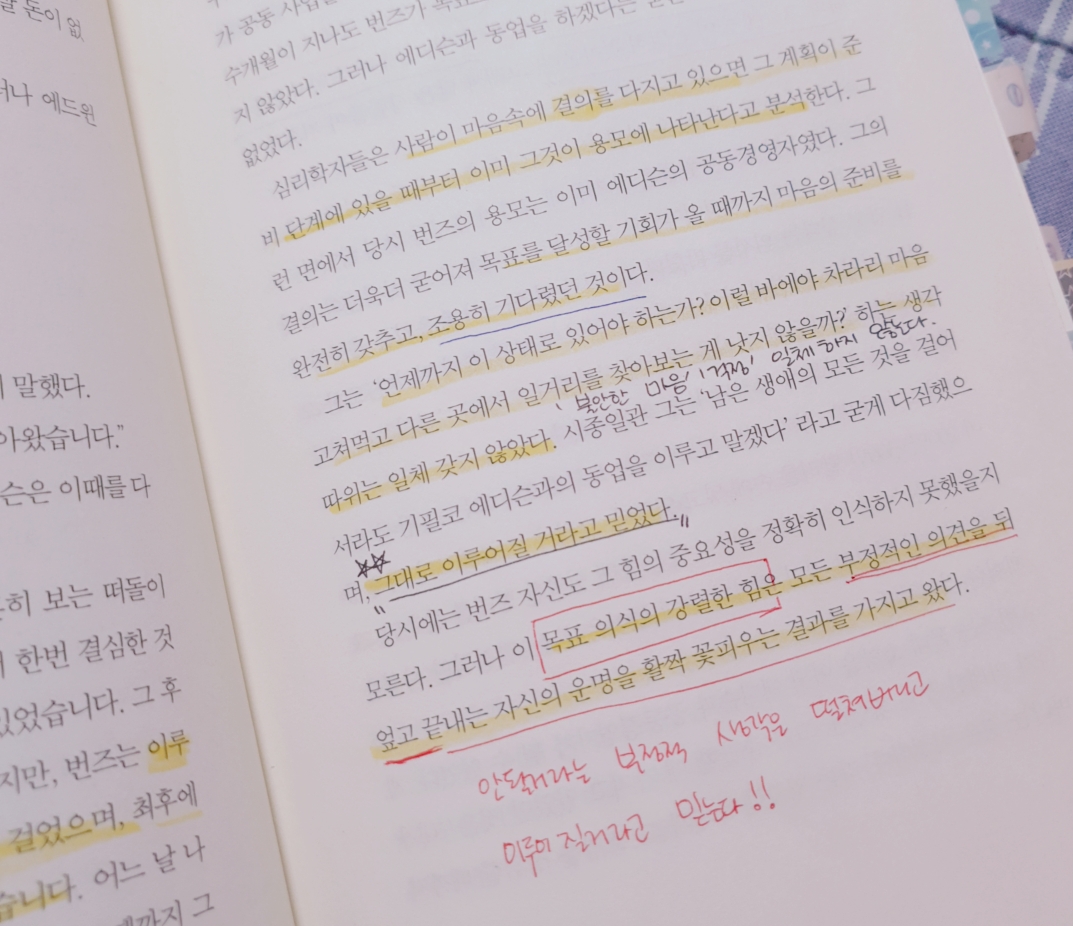 날 돈이 없
에드윈
말했다.
아왔습니다."
슨은 이때를 다
히 보는 떠돌이
한번 결심한 것
있었습니다. 그 후
지만, 번즈는 이루
걸었으며, 최후에
습니다. 어느 날 나
까지 그
가 공동
수개월이 지나도 번즈가
지 않았다. 그러나 에디슨과 동업을 하겠다는
없었다.
심리학자들은 사람이 마음속에 결의를 다지고 있으면 그 계획이 준
비 단계에 있을 때부터 이미 그것이 용모에 나타난다고 분석한다. 그
런 면에서 당시 번즈의 용모는 이미 에디슨의 공동경영자였다. 그의
결의는 더욱더 굳어져 목표를 달성할 기회가 올 때까지 마음의 준비를
완전히 갖추고, 조용히 기다렸던 것이다.
그는 '언제까지 이 상태로 있어야 하는가? 이럴 바에야 차라리 마음
고쳐먹고 다른 곳에서 일거리를 찾아보는 게 낫지 않을까?' 하는 생각
'불안한 마음', '걱정' 일체 하지 않는다.
따위는 일체 갖지 않았다. 시종일관 그는 '남은 생애의 모든 것을 걸어
서라도 기필코 에디슨과의 동업을 이루고 말겠다' 라고 굳게 다짐했으
며, "그대로 이루어질 거라고 믿었다."
당시에는 번즈 자신도 그 힘의 중요성을 정확히 인식하지 못했을지
모른다. 그러나 이 목표 의식의 강렬한 힘은 모든 부정적인 의견을 뒤
엎고 끝내는 자신의 운명을 활짝 꽃피우는 결과를 가지고 왔다.
안될거라는 부정적 생각을 떨쳐버리고
이루어질거라고 믿는다!!